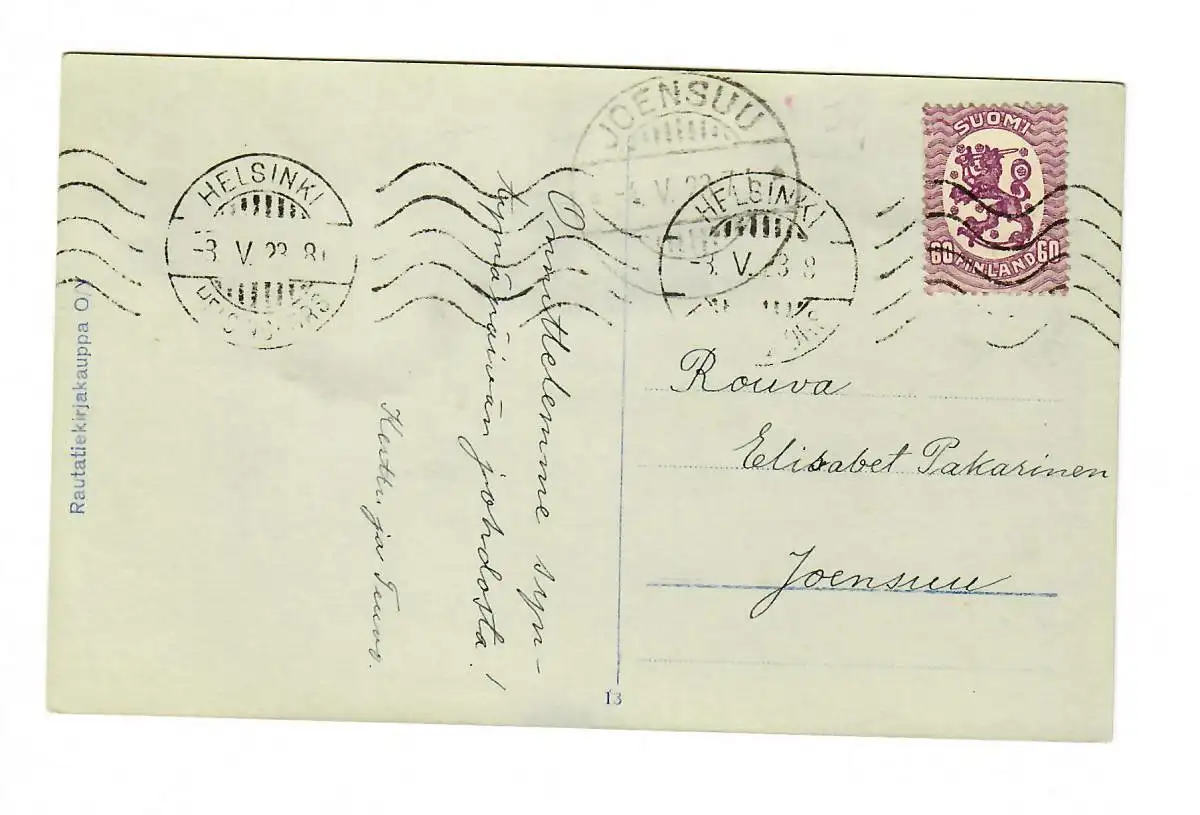 Rautatiekirjakauppa O/Y
HELSINKI
-3. V. 23. 8
HELSINGFORS
JOENSUU
-4. V. 23. 7
HELSINKI
-3. V. 23 8
SUOMI
60 FINLAND 60
Onnittelemme syn-
tymäpäivän johdosta!
Kerttu ja Teuvo.
Rouva
Elisabet Pakarinen
Joensuu
13